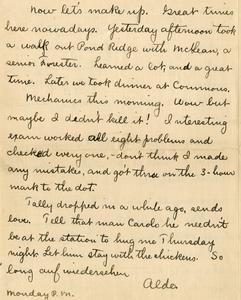 Now let's make up. Great times
here nowadays. Yesterday afternoon took
a walk out Pond Ridge with McLean, a
senior Forester. Learned a lot, and a great
time. Later we took dinner at Commons.
Mechanics this morning. Wow but
maybe I didn't kill it! Interesting
exam worked all eight problems and
checked every one, - don't think I made
any mistakes, and got thru on the 3-hour
mark to the dot.
Tally dropped in a while ago, sends
love. Tell that man Carolo he needn't
be at the station to hug me Thursday
night. Let him stay with the chickens. So
long auf wiedersehen
Monday P.M.